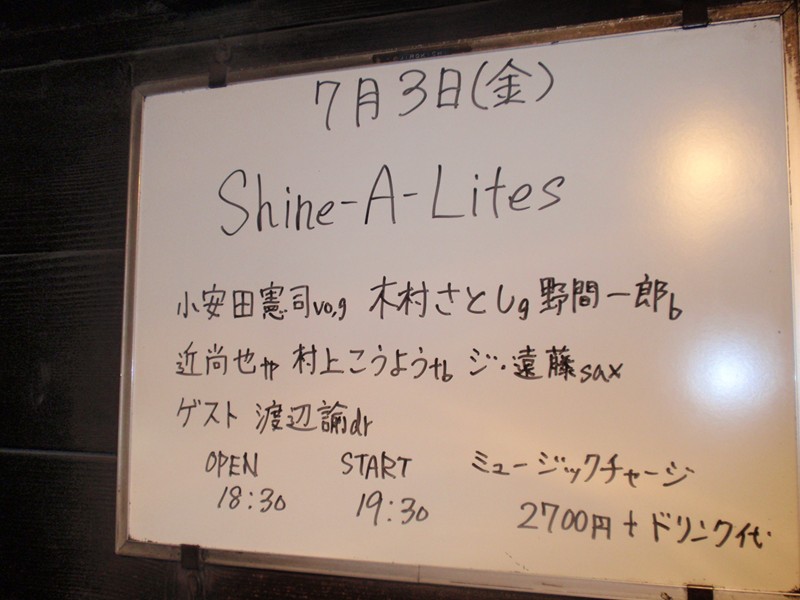 7月3日(金)
Shine-A-Lites
小安田憲司vo,g 木村さとしg 野間一郎b
近尚也tp 村上こうようtb ジ・遠藤sax
ゲスト 渡辺諭dr
OPEN START ミュージックチャージ
18:30 19:30 2700円+ドリンク代